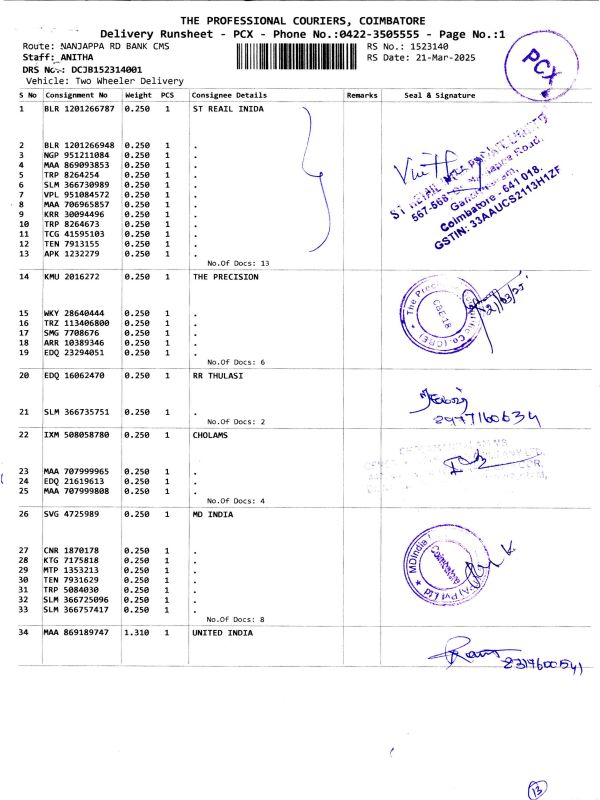 THE PROFESSIONAL COURIERS, COIMBATORE
Delivery Runsheet - PCX - Phone No.:0422-3505555 - Page No.:1
Route: NANJAPPA RD BANK CMS RS No.: 1523140
Staff: ANITHA RS Date: 21-Mar-2025
DRS No.: DCJB152314001
Vehicle: Two Wheeler Delivery
PCX
S No Consignment No Weight PCS Consignee Details Remarks Seal & Signature
1 BLR 1201266787 0.250 1 ST REAIL INIDA
2 BLR 1201266948 0.250 1 .
3 NGP 951211084 0.250 1 .
4 MAA 869093853 0.250 1 .
5 TRP 8264254 0.250 1 .
6 SLM 366730989 0.250 1 .
7 VPL 951084572 0.250 1 .
8 MAA 706965857 0.250 1 .
9 KRR 30094496 0.250 1 .
10 TRP 8264673 0.250 1 .
11 TCG 41595103 0.250 1 .
12 TEN 7913155 0.250 1 .
13 APK 1232279 0.250 1 .
No.Of Docs: 13
ST RETAIL
567-568
Coimbatore - 641 018.
GSTIN: 33AAUCS2113H1ZF
14 KMU 2016272 0.250 1 THE PRECISION
15 WKY 28640444 0.250 1 .
16 TRZ 113406800 0.250 1 .
17 SMG 7708676 0.250 1 .
18 ARR 10389346 0.250 1 .
19 EDQ 23294051 0.250 1 .
No.Of Docs: 6
CBE-18
21/03/25
20 EDQ 16062470 0.250 1 RR THULASI
21 SLM 366735751 0.250 1 .
No.Of Docs: 2
22 IXM 508058780 0.250 1 CHOLAMS
23 MAA 707999965 0.250 1 .
24 EDQ 21619613 0.250 1 .
25 MAA 707999808 0.250 1 .
No.Of Docs: 4
26 SVG 4725989 0.250 1 MD INDIA
27 CNR 1870178 0.250 1 .
28 KTG 7175818 0.250 1 .
29 MTP 1353213 0.250 1 .
30 TEN 7931629 0.250 1 .
31 TRP 5084030 0.250 1 .
32 SLM 366725096 0.250 1 .
33 SLM 366757417 0.250 1 .
No.Of Docs: 8
MDIndia
Coimbatore
Pvt Ltd
34 MAA 869189747 1.310 1 UNITED INDIA
13